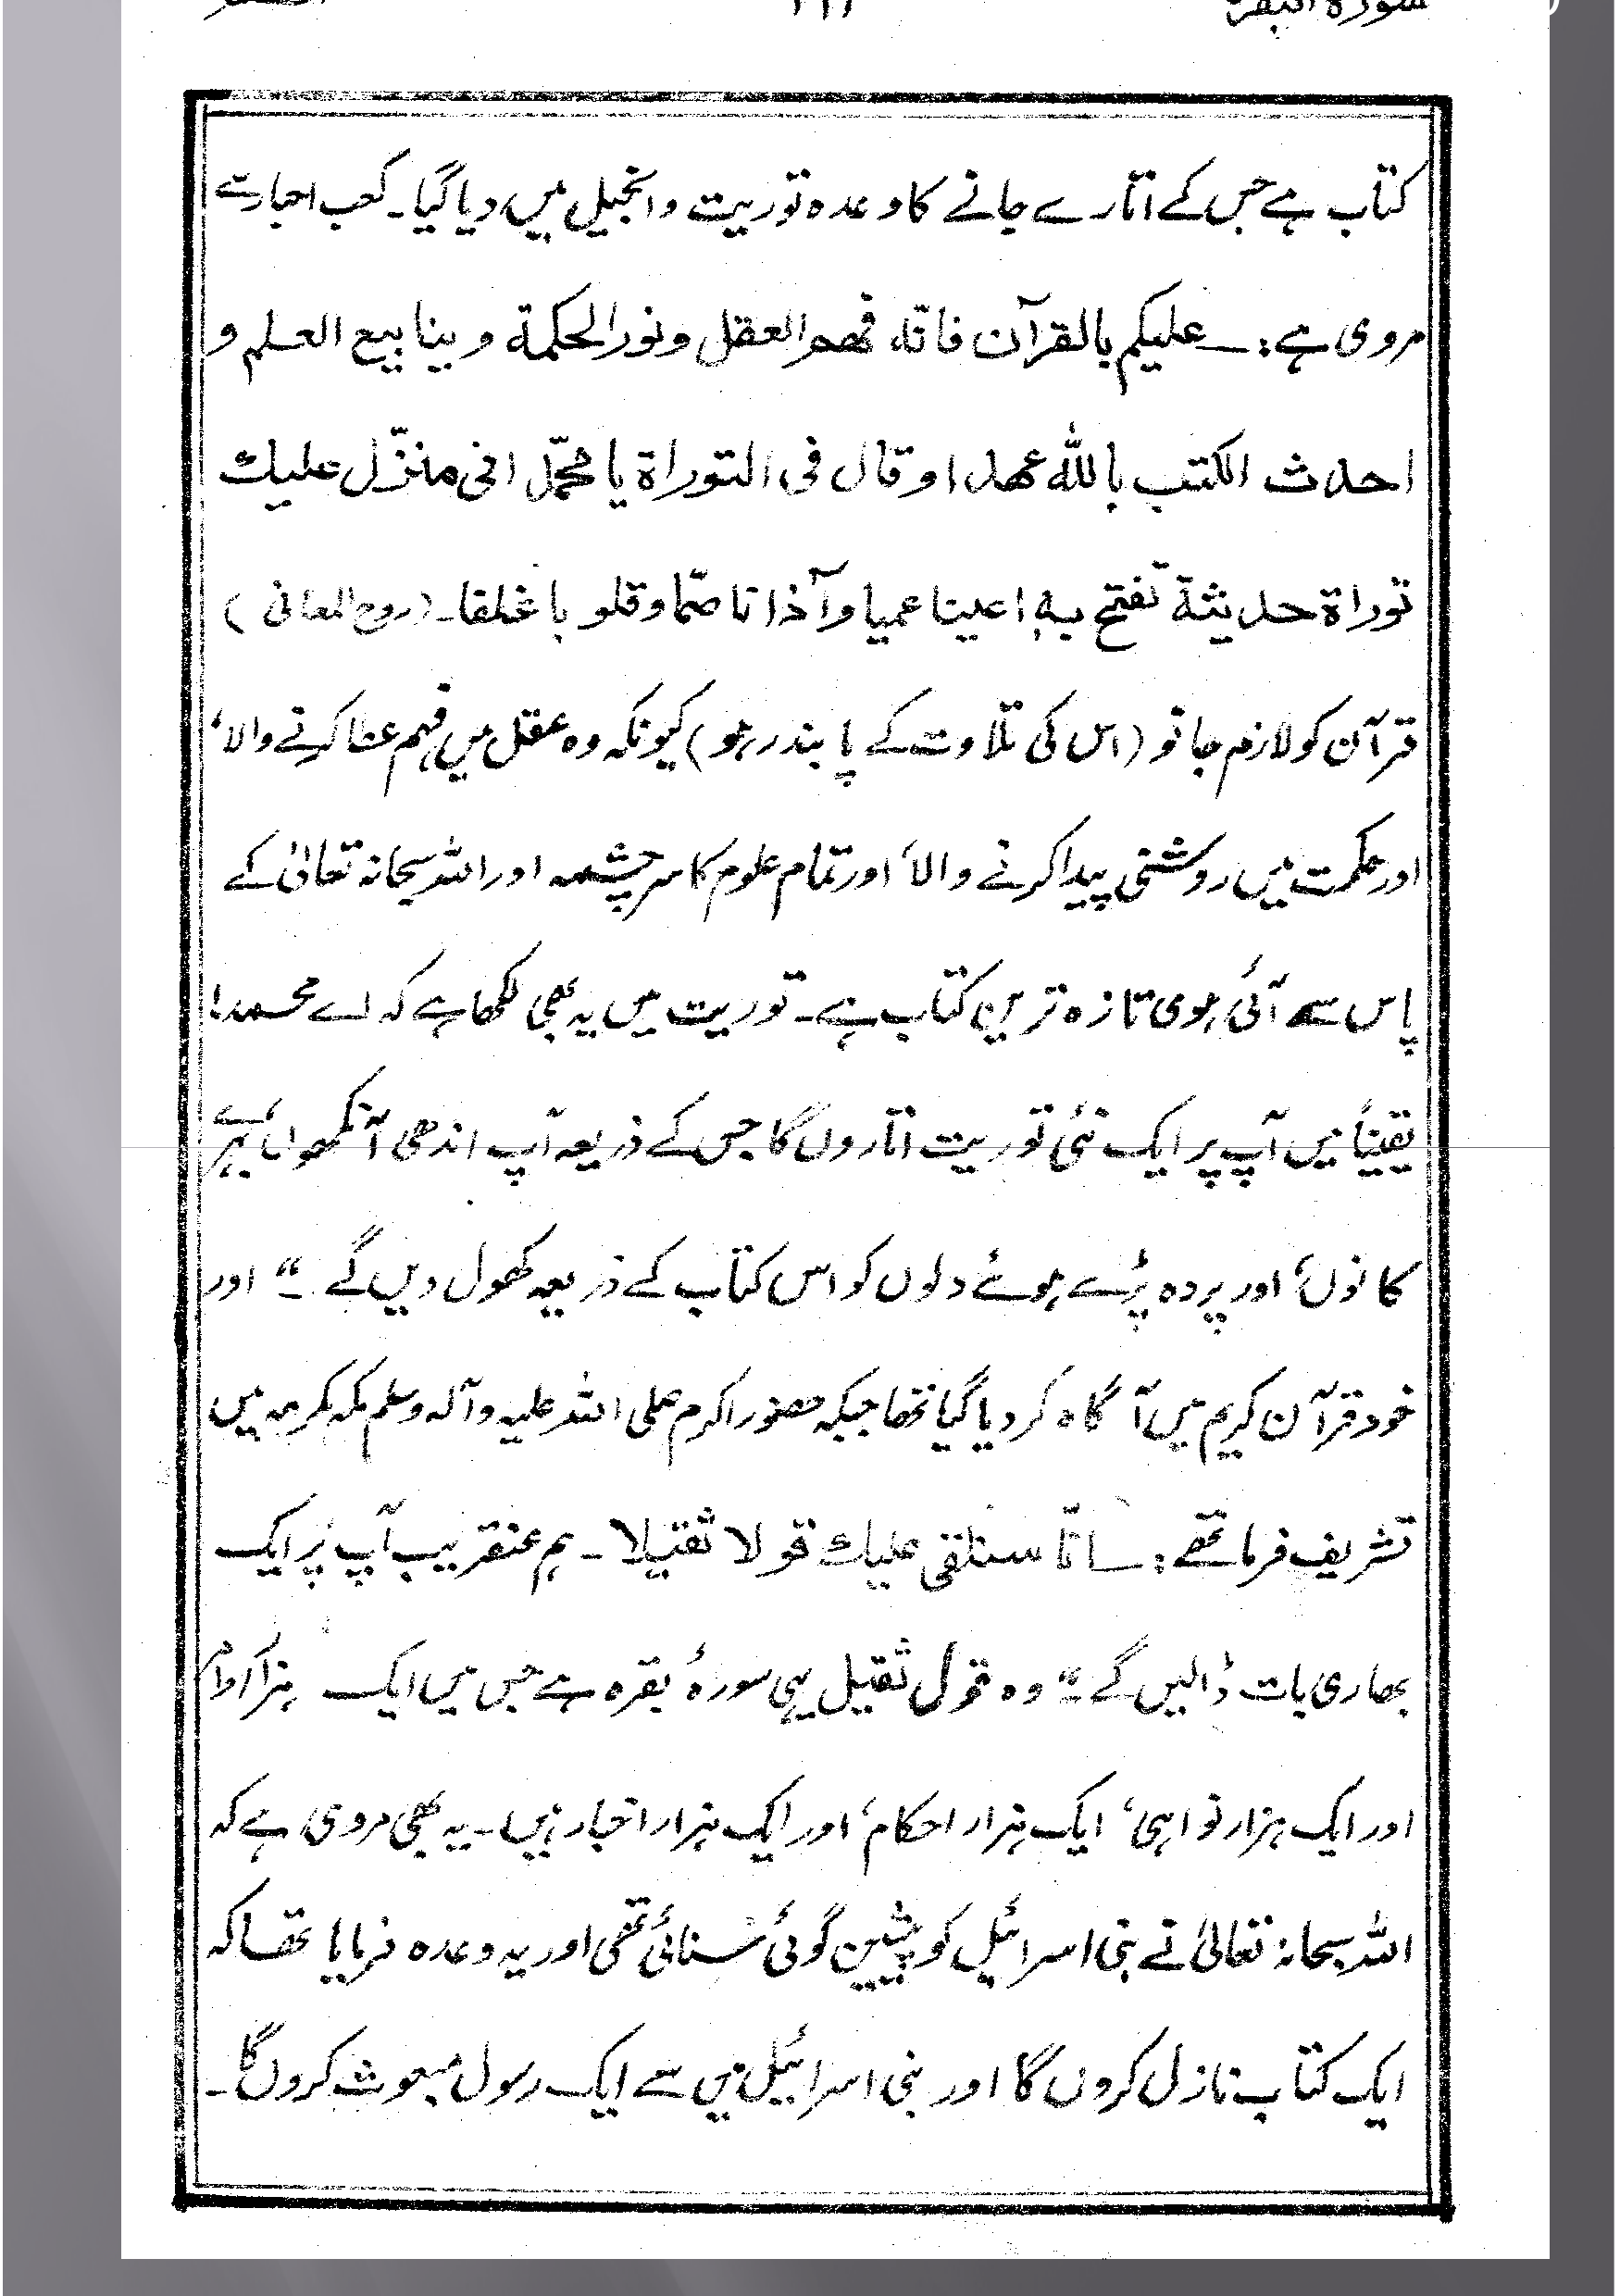 سورة البقرة
کتاب ہے جس کے اتارے جانے کا وعدہ توریت وانجیل میں دیا گیا۔ کعب احبار سے
مروی ہے:۔ علیکم بالقرآن فانّہ فھم العقل ونور الحکمة وینابیع العلم و
احدث الکتب باللہ عھدا وقال فی التوراة یا محمّد انی منزّل علیك
توراة حدیثة تفتح بہٖ اعینا عمیا وآذانا صمّا وقلوبا غلفا۔ (روح المعانی)
قرآن کو لازم جانو (اس کی تلاوت کے پابند رہو) کیونکہ وہ عقل میں فہم عطا کرنے والا،
اور حکمت میں روشنی پیدا کرنے والا، اور تمام علوم کا سرچشمہ اور اللہ سبحانہ تعالیٰ کے
پاس سے آئی ہوی تازہ ترین کتاب ہے۔ توریت میں یہ بھی لکھا ہے کہ اے محمد!
یقیناً میں آپ پر ایک نئی توریت اتاروں گا جس کے ذریعہ آپ اندھی آنکھوں، بہرے
کانوں، اور پردہ پڑے ہوئے دلوں کو اس کتاب کے ذریعہ کھول دیں گے ۔“ اور
خود قرآن کریم میں آگاہ کر دیا گیا تھا جبکہ حضور اکرم صلی اللہ علیہ وآلہ وسلم مکہ مکرمہ میں
تشریف فرما تھے:۔ انّا سنلقی علیك قولا ثقیلا۔ ہم عنقریب آپ پر ایک
بھاری بات ڈالیں گے۔“ وہ قول ثقیل یہی سورۂ بقرہ ہے جس میں ایک ہزار اوامر
اور ایک ہزار نواہی، ایک ہزار احکام، اور ایک ہزار اخبار ہیں۔ یہ بھی مروی ہے کہ
اللہ سبحانہ تعالیٰ نے بنی اسرائیل کو پیشین گوئی سُنائی تھی اور یہ وعدہ فرمایا تھا کہ
ایک کتاب نازل کروں گا اور بنی اسرائیل میں سے ایک رسول مبعوث کروں گا۔